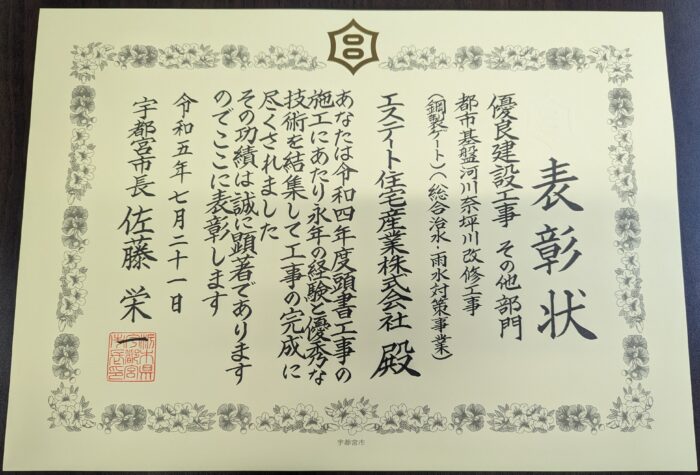 表彰状
優良建設工事 その他部門
都市基盤河川奈坪川改修工事
(鋼製ゲート)(総合治水・雨水対策事業)
エステート住宅産業株式会社 殿
あなたは令和四年度頭書工事の
施工にあたり永年の経験と優秀な
技術を結集して工事の完成に
尽くされました
その功績は誠に顕著であります
のでここに表彰します
令和五年七月二十一日
宇都宮市長 佐藤栄一
栃木県
宇都宮
市長印
宇都宮市